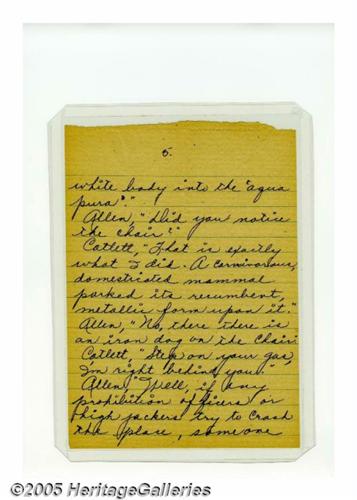 5.
white body into the "aqua
pura"."
Allen, "Did you notice
the chair?"
Catlett, "That is exactly
what I did. A carnivorous,
domestriated mammal
parked its recumbent,
metallic form upon it."
Allen, "No, there there is
an iron dog on the chair.
Catlett, "Step on your gas,
I'm right behing you."
Allen, "Well, if any
prohibition officers or
high jackers try to crash
the place, someone
©2005 HeritageGalleries